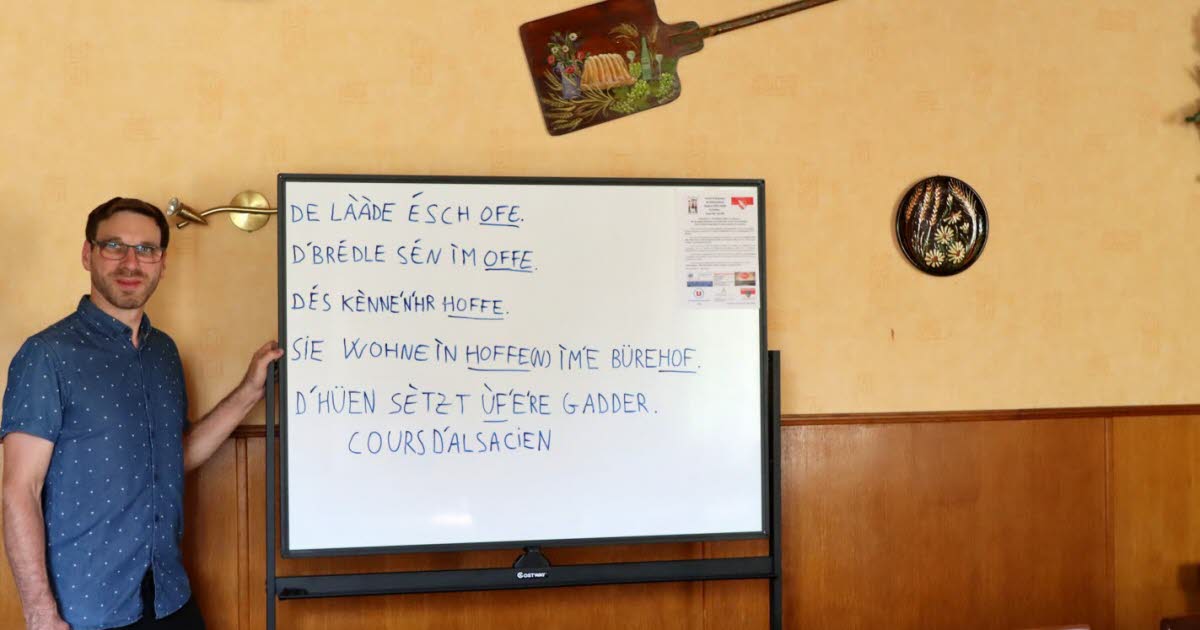 DE LÀÀDE ÉSCH OFE.
D'BRÉDLE SÉN ÌM OFFE.
DÉS KÈNNE'N'IHR HOFFE.
SIE WOHNE ÌN HOFFE(N) ÌM'E BÜREHOF.
D'HÜEN SÈTZT ÙF'E'RE GADDER.
COURS D'ALSACIEN
COSTWAY